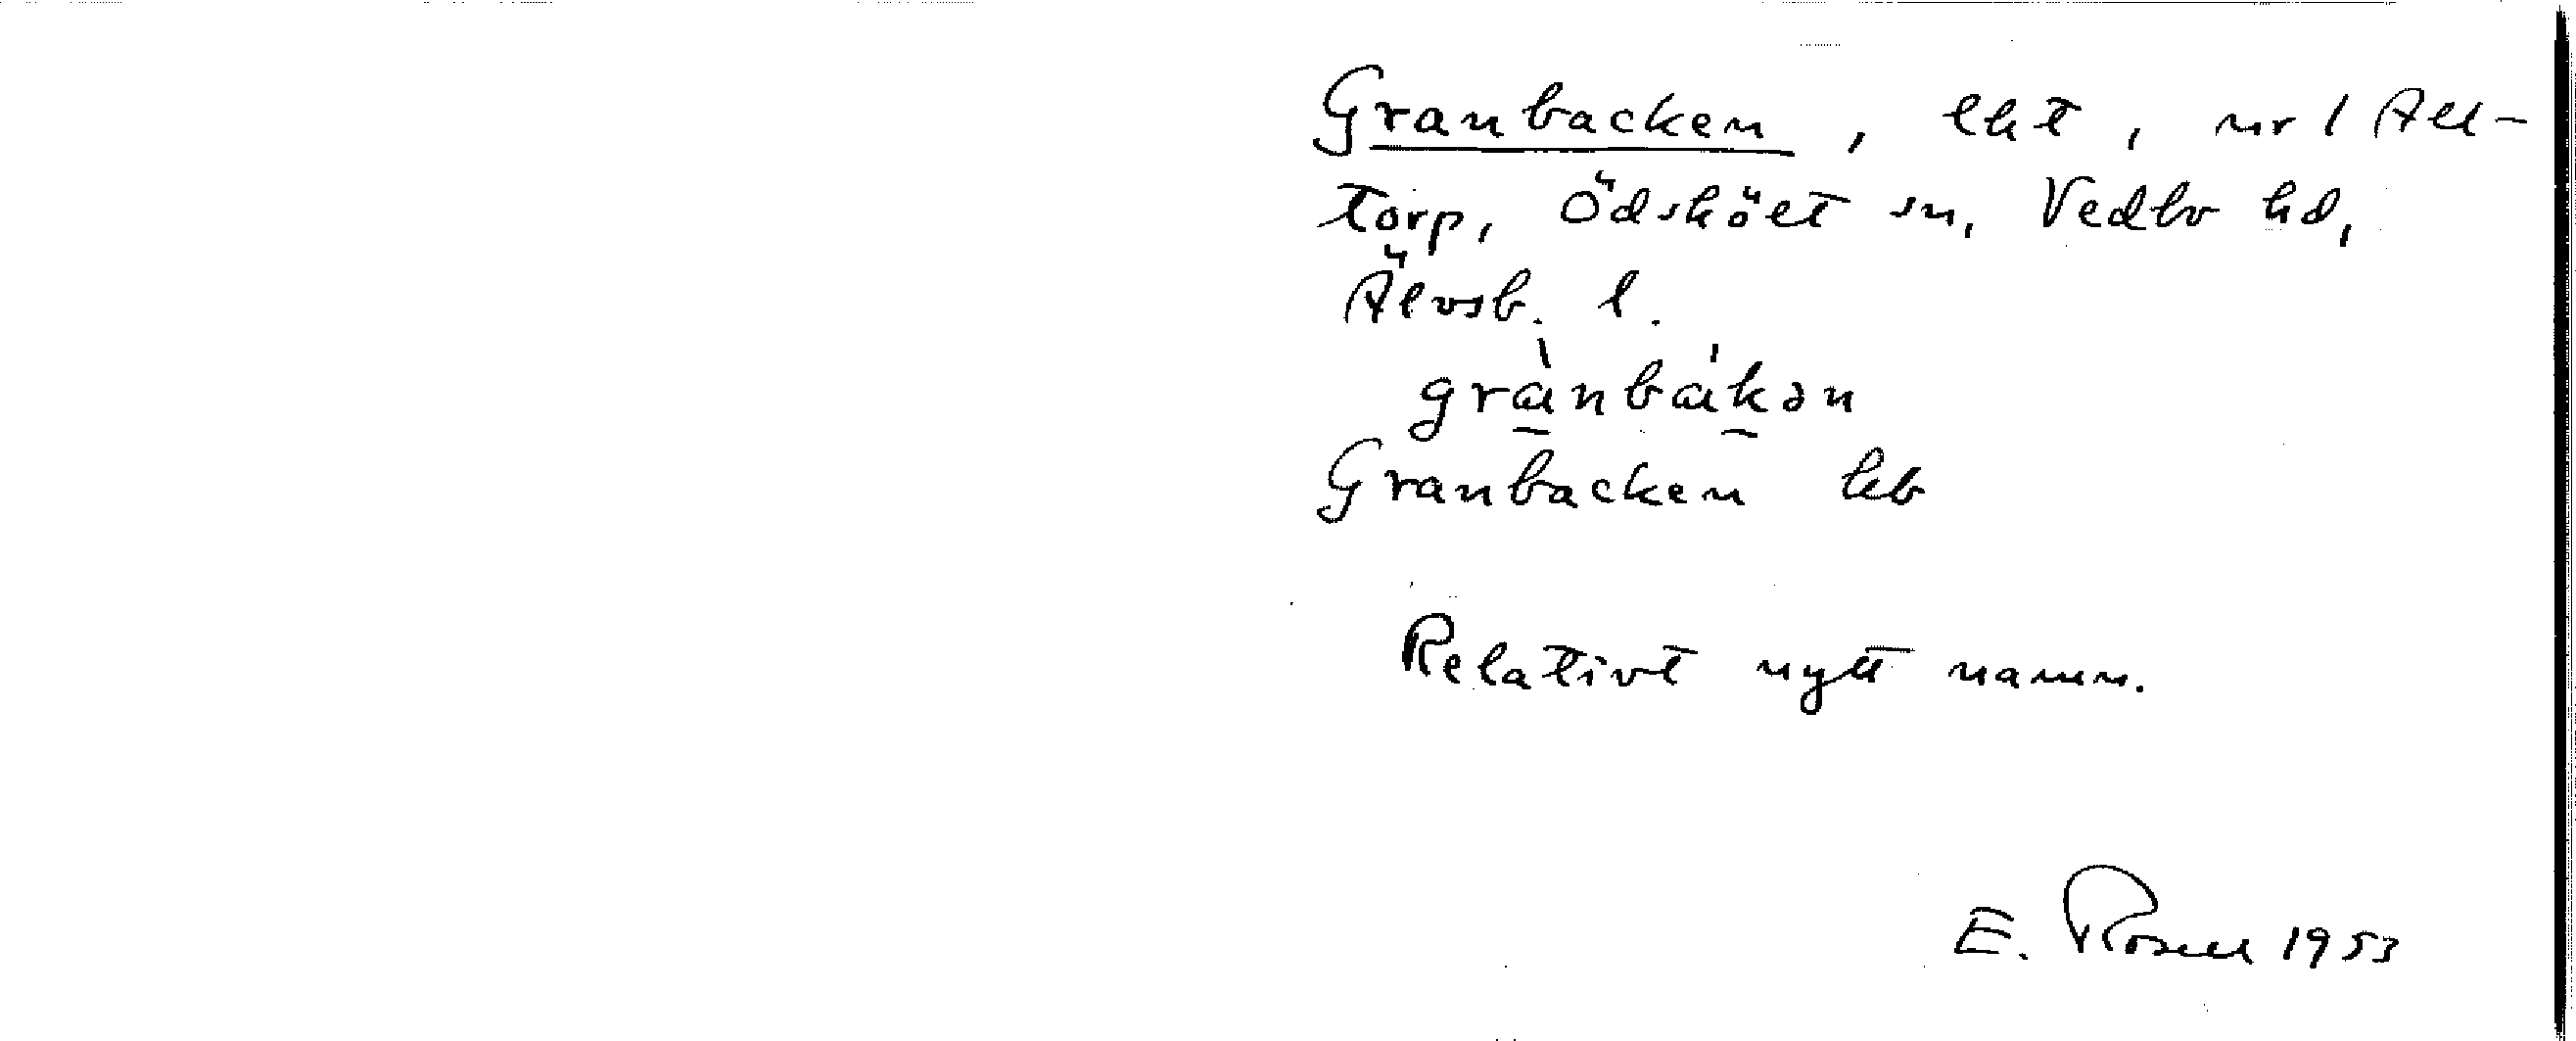 Granbacken, lht, nr 1 All-
torp, Ödskölt sn, Vedbo hd,
Älvsb. l.
grànbákən
Granbacken kb
Relativt nytt namn.
E. Rosell 1953